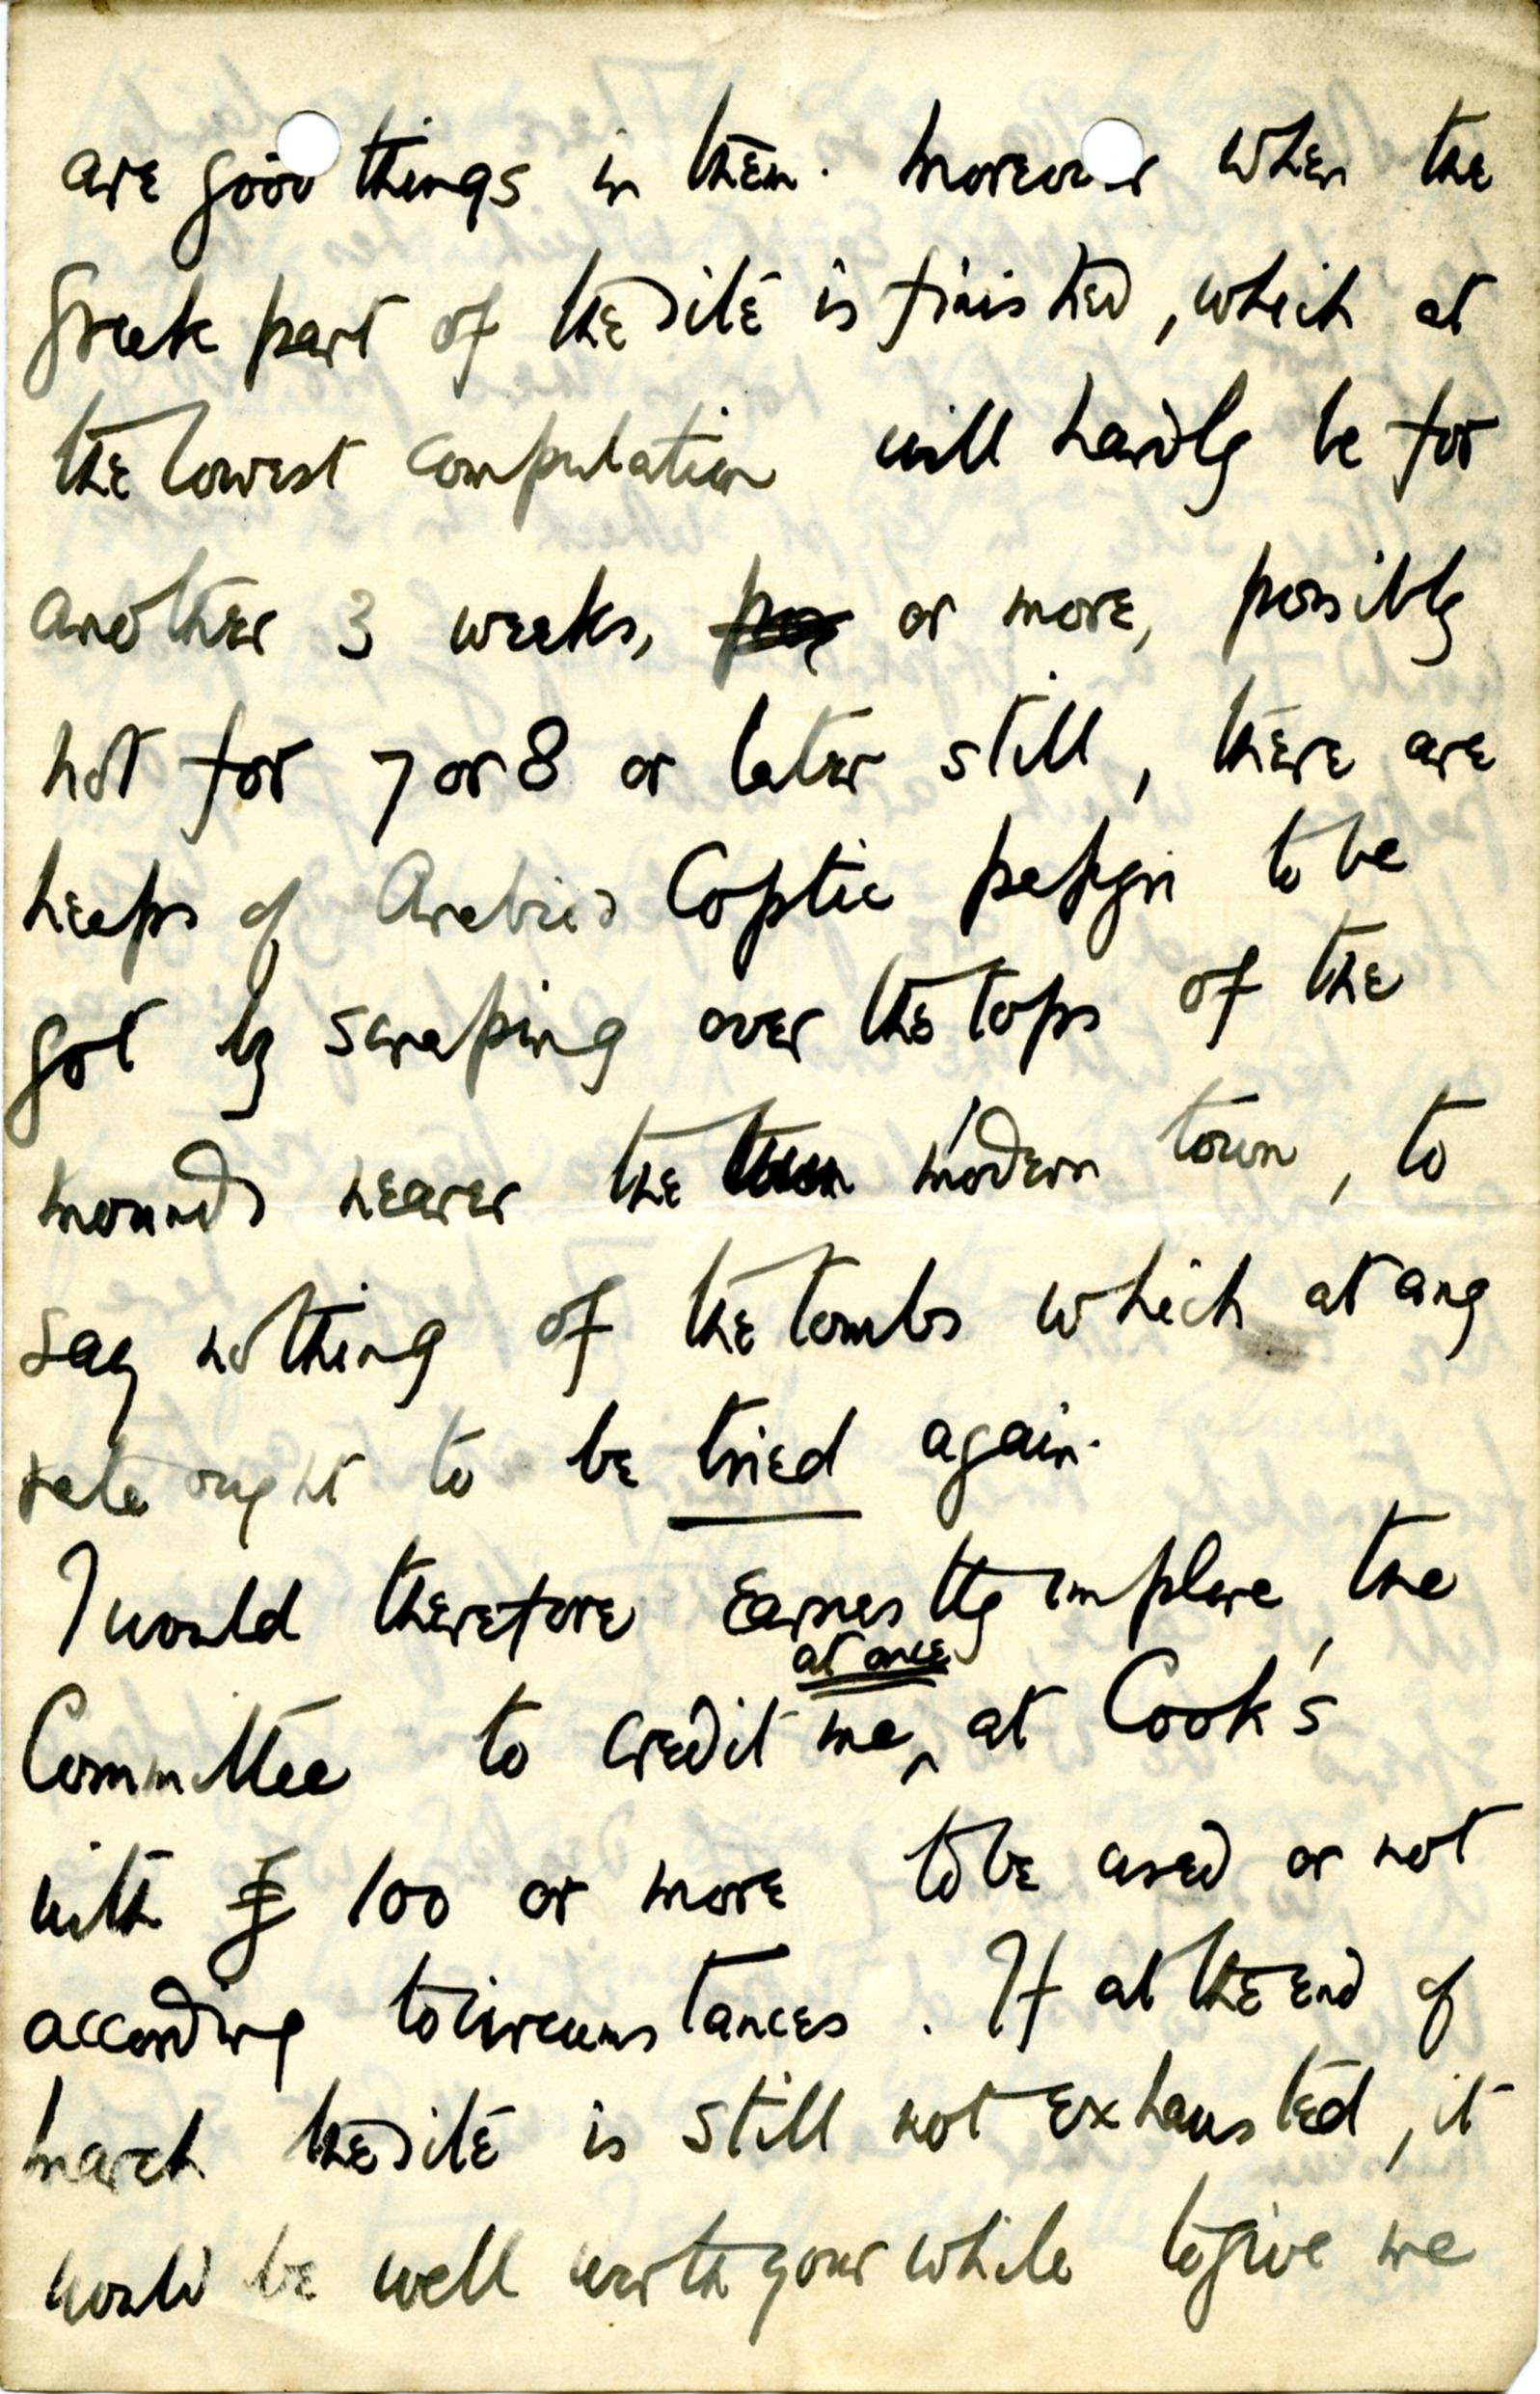 are good things in them. Moreover when the
Greek part of the site is finished, which at
the lowest computation will hardly be for
another 3 weeks, or more, possibly
not for 7 or 8 or later still, there are
heaps of Arabic & Coptic papyri to be
got by scraping over the tops of the
mounds nearer the town modern town, to
say nothing of the tombs which at any
rate ought to be tried again.
I would therefore earnestly implore the
at once
Committee to credit me ‸ at Cook's
with £ 100 or more to be used or not
according to circumstances. If at the end of
March the site is still not exhausted, it
would be well worth your while to give me